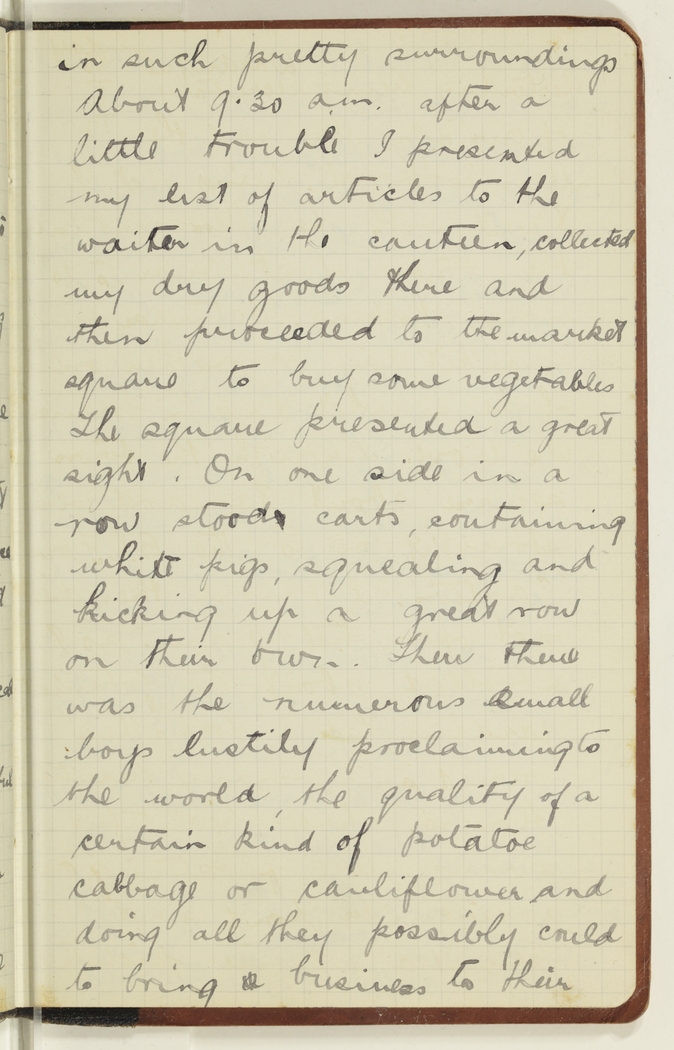 in such pretty surroundings
About 9.30 a.m. after a
little trouble I presented
my list of articles to the
waiter in the canteen, collected
my dry goods there and
then proceeded to the market
square to buy some vegetables
The square presented a great
sight. On one side in a
row stood carts, containing
white pigs, squealing and
kicking up a great row
on their own. Then there
was the numerous small
boys lustily proclaiming to
the world, the quality of a
certain kind of potatoe
cabbage or cauliflower and
doing all they possibly could
to bring business to their